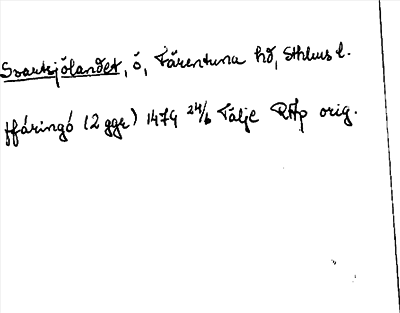 Svartsjölandet, ö, Färentuna hd, Sthlms l.
ffäringö (2 ggr) 1479 24/6 Tälje RAp orig.